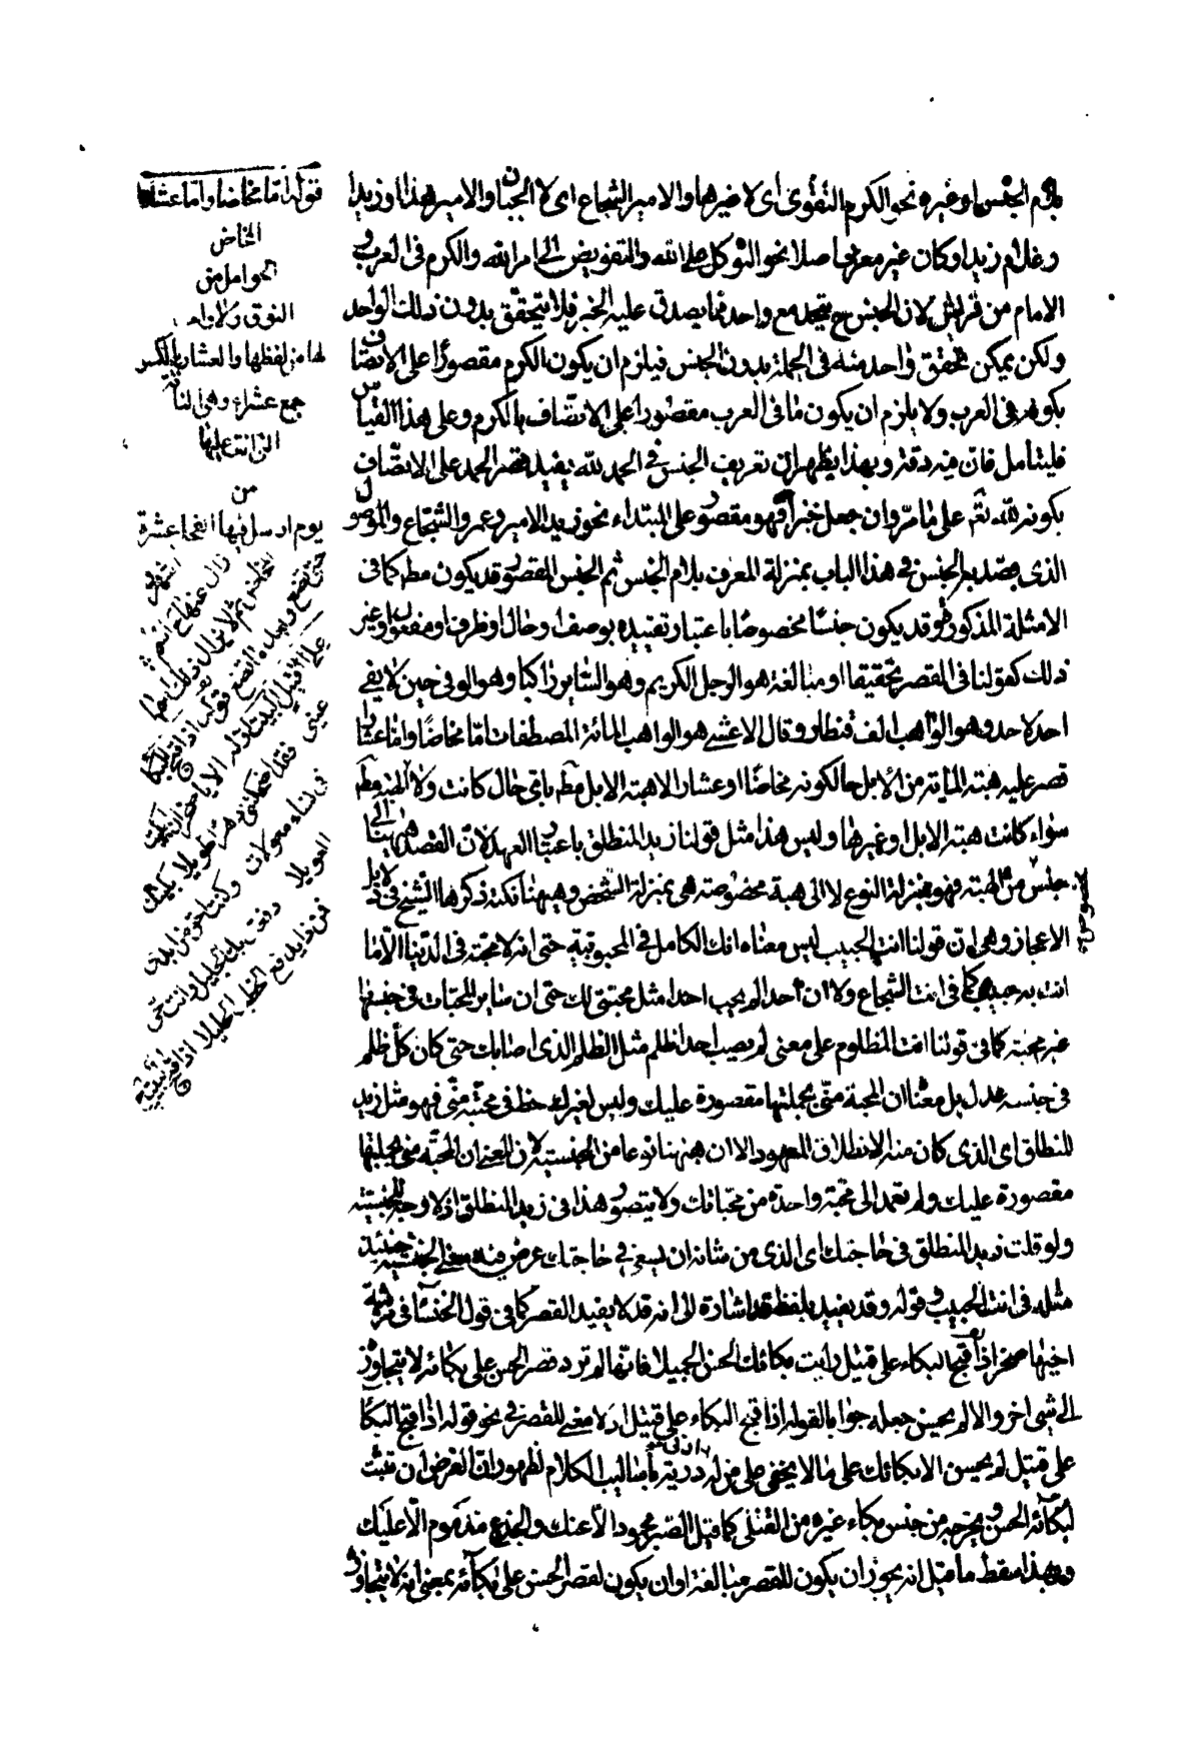 بلام الجنس او غيره نحو الكرم التقوى اى لا غيرها والامير الشجاع اى لا الجبان والامير هذا او زيد
وغلام زيد او كان غير معرف اصلا نحو التوكل على الله والتفويض الى امر الله والكرم فى العرب و
الامام من قريش لان الجنس ح يتحد مع واحد مما يصدق عليه الخبر فلا يتحقق بدون ذلك الواحد
ولكن يمكن تحقق واحد منه فى الجملة بدون الجنس فيلزم ان يكون الكرم مقصورا على الاتصاف
بكونه فى العرب ولا يلزم ان يكون ما فى العرب مقصورا على الاتصاف بالكرم وعلى هذا القياس
فليتأمل فان فيه دقة وبهذا يظهر ان تعريف الجنس فى الحمد لله يفيد قصر الحمد على الاتصاف
بكونه لله تع على ما مر وان جعل خبرا فهو مقصور على المبتداء نحو زيد الامير وعمرو الشجاع والموصول
الذى يقصد به الجنس فى هذا الباب بمنزلة المعرف بلام الجنس ثم الجنس المقصور قد يكون مطلقا كما فى
الامثلة المذكورة وقد يكون جنسا مخصوصا باعتبار تقييده بوصف او حال او ظرف او مفعول او غير
ذلك كقولنا فى القصر تحقيقا او مبالغة هو الرجل الكريم وهو السائر راكبا وهو الوفى حين لا يفى
احد لاحد وهو الواهب الف قنطار وقال الاعشى هو الواهب المائة المصطفات اما مخاضا واما عشارا
قصر عليه هبة المائة من الابل حال كونه مخاضا او عشارا لا هبة الابل مطلقا باى حال كانت ولا الهبة مطلقا
سواء كانت هبة الابل او غيرها وليس هذا مثل قولنا زيد المنطلق باعتبار العهد لان القصد ههنا الى
جنس من الهبة فهو بمنزلة النوع لا الى هبة مخصوصة هى بمنزلة الشخص وههنا نكتة ذكرها الشيخ فى دلايل
الاعجاز وهى ان قولنا انت الحبيب ليس معناه انك الكامل فى المحبوبية حتى انه لا محبة فى الدنيا الا ما
انت به حبيب كما فى انت الشجاع ولا ان احدا لم يحب احدا مثل محبتى لك حتى ان سائر المحبات فى جنبها
غير محبة كما فى قولنا انت المظلوم على معنى لم يصب احدا ظلم مثل الظلم الذى اصابك حتى كان كل ظلم
فى جنبه عدل بل معناه ان المحبة منى بجملتها مقصورة عليك وليس لغيرك حظ فى محبة منى فهو مثل زيد
المنطلق اى الذى كان منه الانطلاق المعهود الا ان ههنا نوعا من الجنسية لان المعنى ان المحبة منى بجملتها
مقصورة عليك ولم تعمد الى محبة واحدة من محباتك ولا يتصور هذا فى زيد المنطلق اذ لا وجه للجنسية
ولو قلت زيد المنطلق فى حاجتك اى الذى من شانه ان يسعى فى حاجتك عرض فيه معنى الجنسية حينئذ
مثله فى انت الحبيب وقوله وقد يفيد بلفظ قد اشارة الى انه قد لا يفيد القصر كما فى قول الخنسا فى مرثية
اخيها صخر اذا قبح البكاء على قتيل رايت بكائك الحسن الجميلا فانها لم ترد قصر الحسن على بكائه لا يتجاوز
الى شى اخر والا لم يحسن جعله جوابا لقوله اذا قبح البكاء على قتيل اذ لا معنى للقصر فى نحو قوله اذا قبح البكا
على قتيل لم يحسن الا بكائك على ما لا يخفى على من له ادنى دربة باساليب الكلام لظهور ان الغرض ان تثبت
لبكائه الحسن وتخرجه من جنس بكاء غيره من القتلى كما قيل الصبر محمود الا عنك والجزع مذموم الا عليك
وبهذا سقط ما قيل انه يجوز ان يكون للقصر مبالغة او ان يكون لقصر الحسن على بكائه بمعنى انه لا يتجاوزه
قوله اما مخاضا واما عشارا
المخاض
الحوامل من
النوق ولا واحد
لها من لفظها والعشار بالكسر
جمع عشراء وهى الناقة
التى اتت عليها
من
يوم ارسل فيها الفحل عشرة